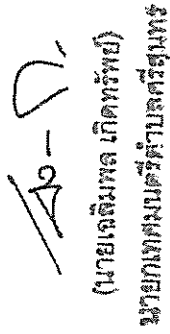 (นายเฉลิมพล เกิดทรัพย์)
นายกเทศมนตรีตำบลศรีสุนทร